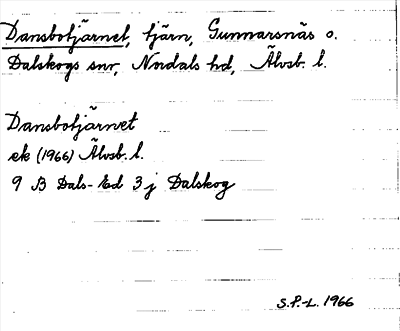 Dansbotjärnet, tjärn, Gunnarsnäs o.
Dalskogs snr, Nordals hd, Älvsb. l.
Dansbotjärnet
ek (1966) Älvsb. l.
9 B Dals-Ed 3 j Dalskog
S.P.-L. 1966